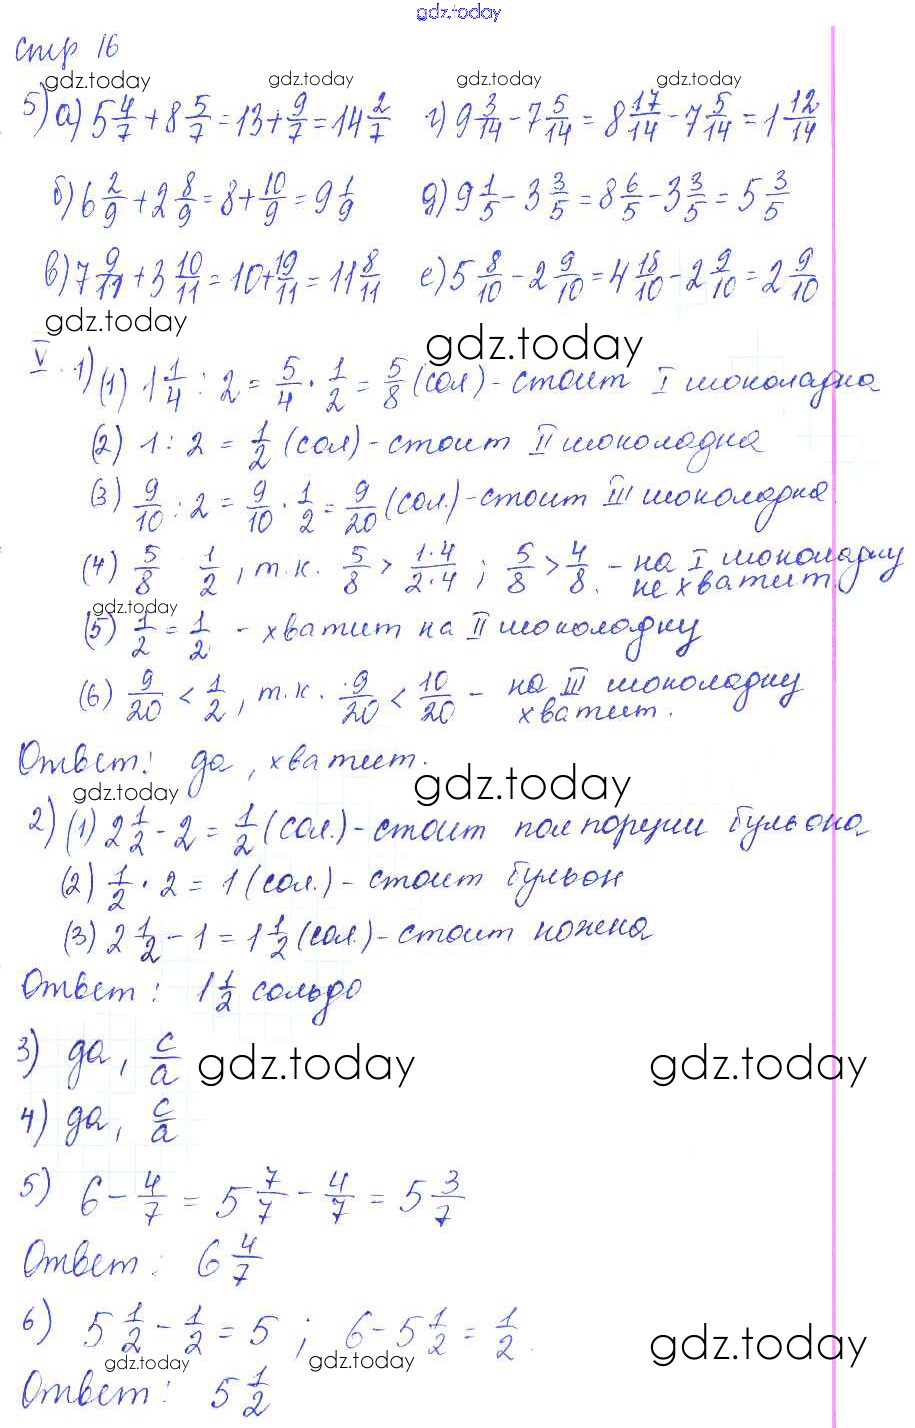 gdz.today
стр 16
gdz.today gdz.today gdz.today gdz.today
5) а) 5 4/7 + 8 5/7 = 13 + 9/7 = 14 2/7 г) 9 3/14 - 7 5/14 = 8 17/14 - 7 5/14 = 1 12/14
б) 6 2/9 + 2 8/9 = 8 + 10/9 = 9 1/9 д) 9 1/5 - 3 3/5 = 8 6/5 - 3 3/5 = 5 3/5
в) 7 9/11 + 3 10/11 = 10 + 19/11 = 11 8/11 е) 5 8/10 - 2 9/10 = 4 18/10 - 2 9/10 = 2 9/10
gdz.today gdz.today
V. 1) (1) 1 1/4 : 2 = 5/4 · 1/2 = 5/8 (сол) - стоит I шоколадка
(2) 1 : 2 = 1/2 (сол) - стоит II шоколадка
(3) 9/10 : 2 = 9/10 · 1/2 = 9/20 (сол.) - стоит III шоколадка.
(4) 5/8 1/2, т.к. 5/8 > 1·4/2·4 ; 5/8 > 4/8. - на I шоколадку
не хватит
gdz.today
(5) 1/2 = 1/2 - хватит на II шоколадку
(6) 9/20 < 1/2, т.к. 9/20 < 10/20 - на III шоколадку
хватит.
Ответ: да, хватит.
gdz.today gdz.today
2) (1) 2 1/2 - 2 = 1/2 (сол.) - стоит пол порции бульона
(2) 1/2 · 2 = 1 (сол.) - стоит бульон
(3) 2 1/2 - 1 = 1 1/2 (сол.) - стоит ножка
Ответ: 1 1/2 сольдо
3) да, c/a
gdz.today gdz.today
4) да, c/a
5) 6 - 4/7 = 5 7/7 - 4/7 = 5 3/7
Ответ: 6 4/7
6) 5 1/2 - 1/2 = 5 ; 6 - 5 1/2 = 1/2.
gdz.today gdz.today gdz.today
Ответ: 5 1/2